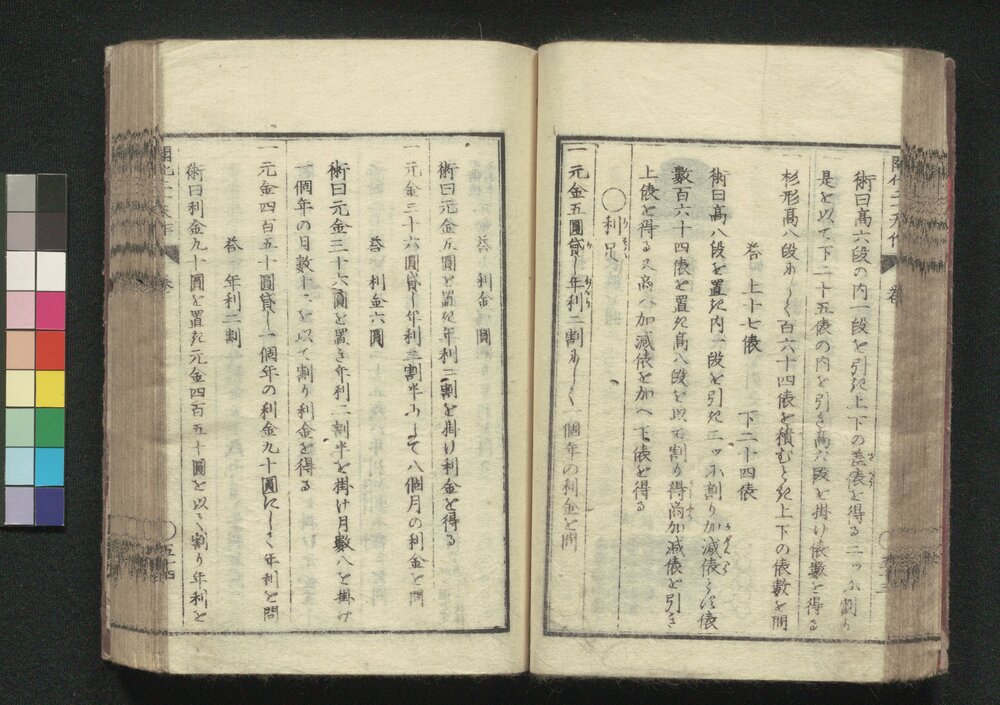 術曰高六段の内一段を引き上下の差俵を得る二ッに割り
是を以て下二十五俵の内を引き高六段を掛け俵数を得る
一杉形高八段にして百六十四俵を積むとき上下の俵數を問
答 上十七俵 下二十四俵
術曰高八段を置き内一段を引き二ッに割り加減俵とす俵
數百六十四俵を置き高八段を以て割り得商加減俵を引き
上俵を得る又商へ加減俵を加へ下俵を得る
○利足
一元金五圓貸し年利二割にして一個年の利金を問
答 利金一圓
術曰元金五圓を置き年利二割を掛け利金を得る
一元金三十六圓貸し年利二割半にして八個月の利金を問
答 利金六圓
術曰元金三十六圓と置き年利二割半を掛け月數八を掛け
一個年の月數十二を以て割り利金を得る
一元金四百五十圓貸し一個年の利金九十圓にして年利を問
答 年利二割
術曰利金九十圓を置き元金四百五十圓を以て割り年利を
○五十四